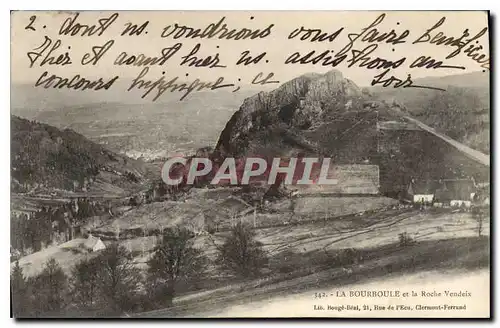 2. dont ns. voudrions vous faire bénéfi
Hier Et avant hier ns. assistions au
concours hippique, ce soir
CPARAMA
342. - LA BOURBOULE et la Roche Vendeix
Lib. Bougé-Béal, 21, Rue de l'Ecu, Clermont-Ferrand